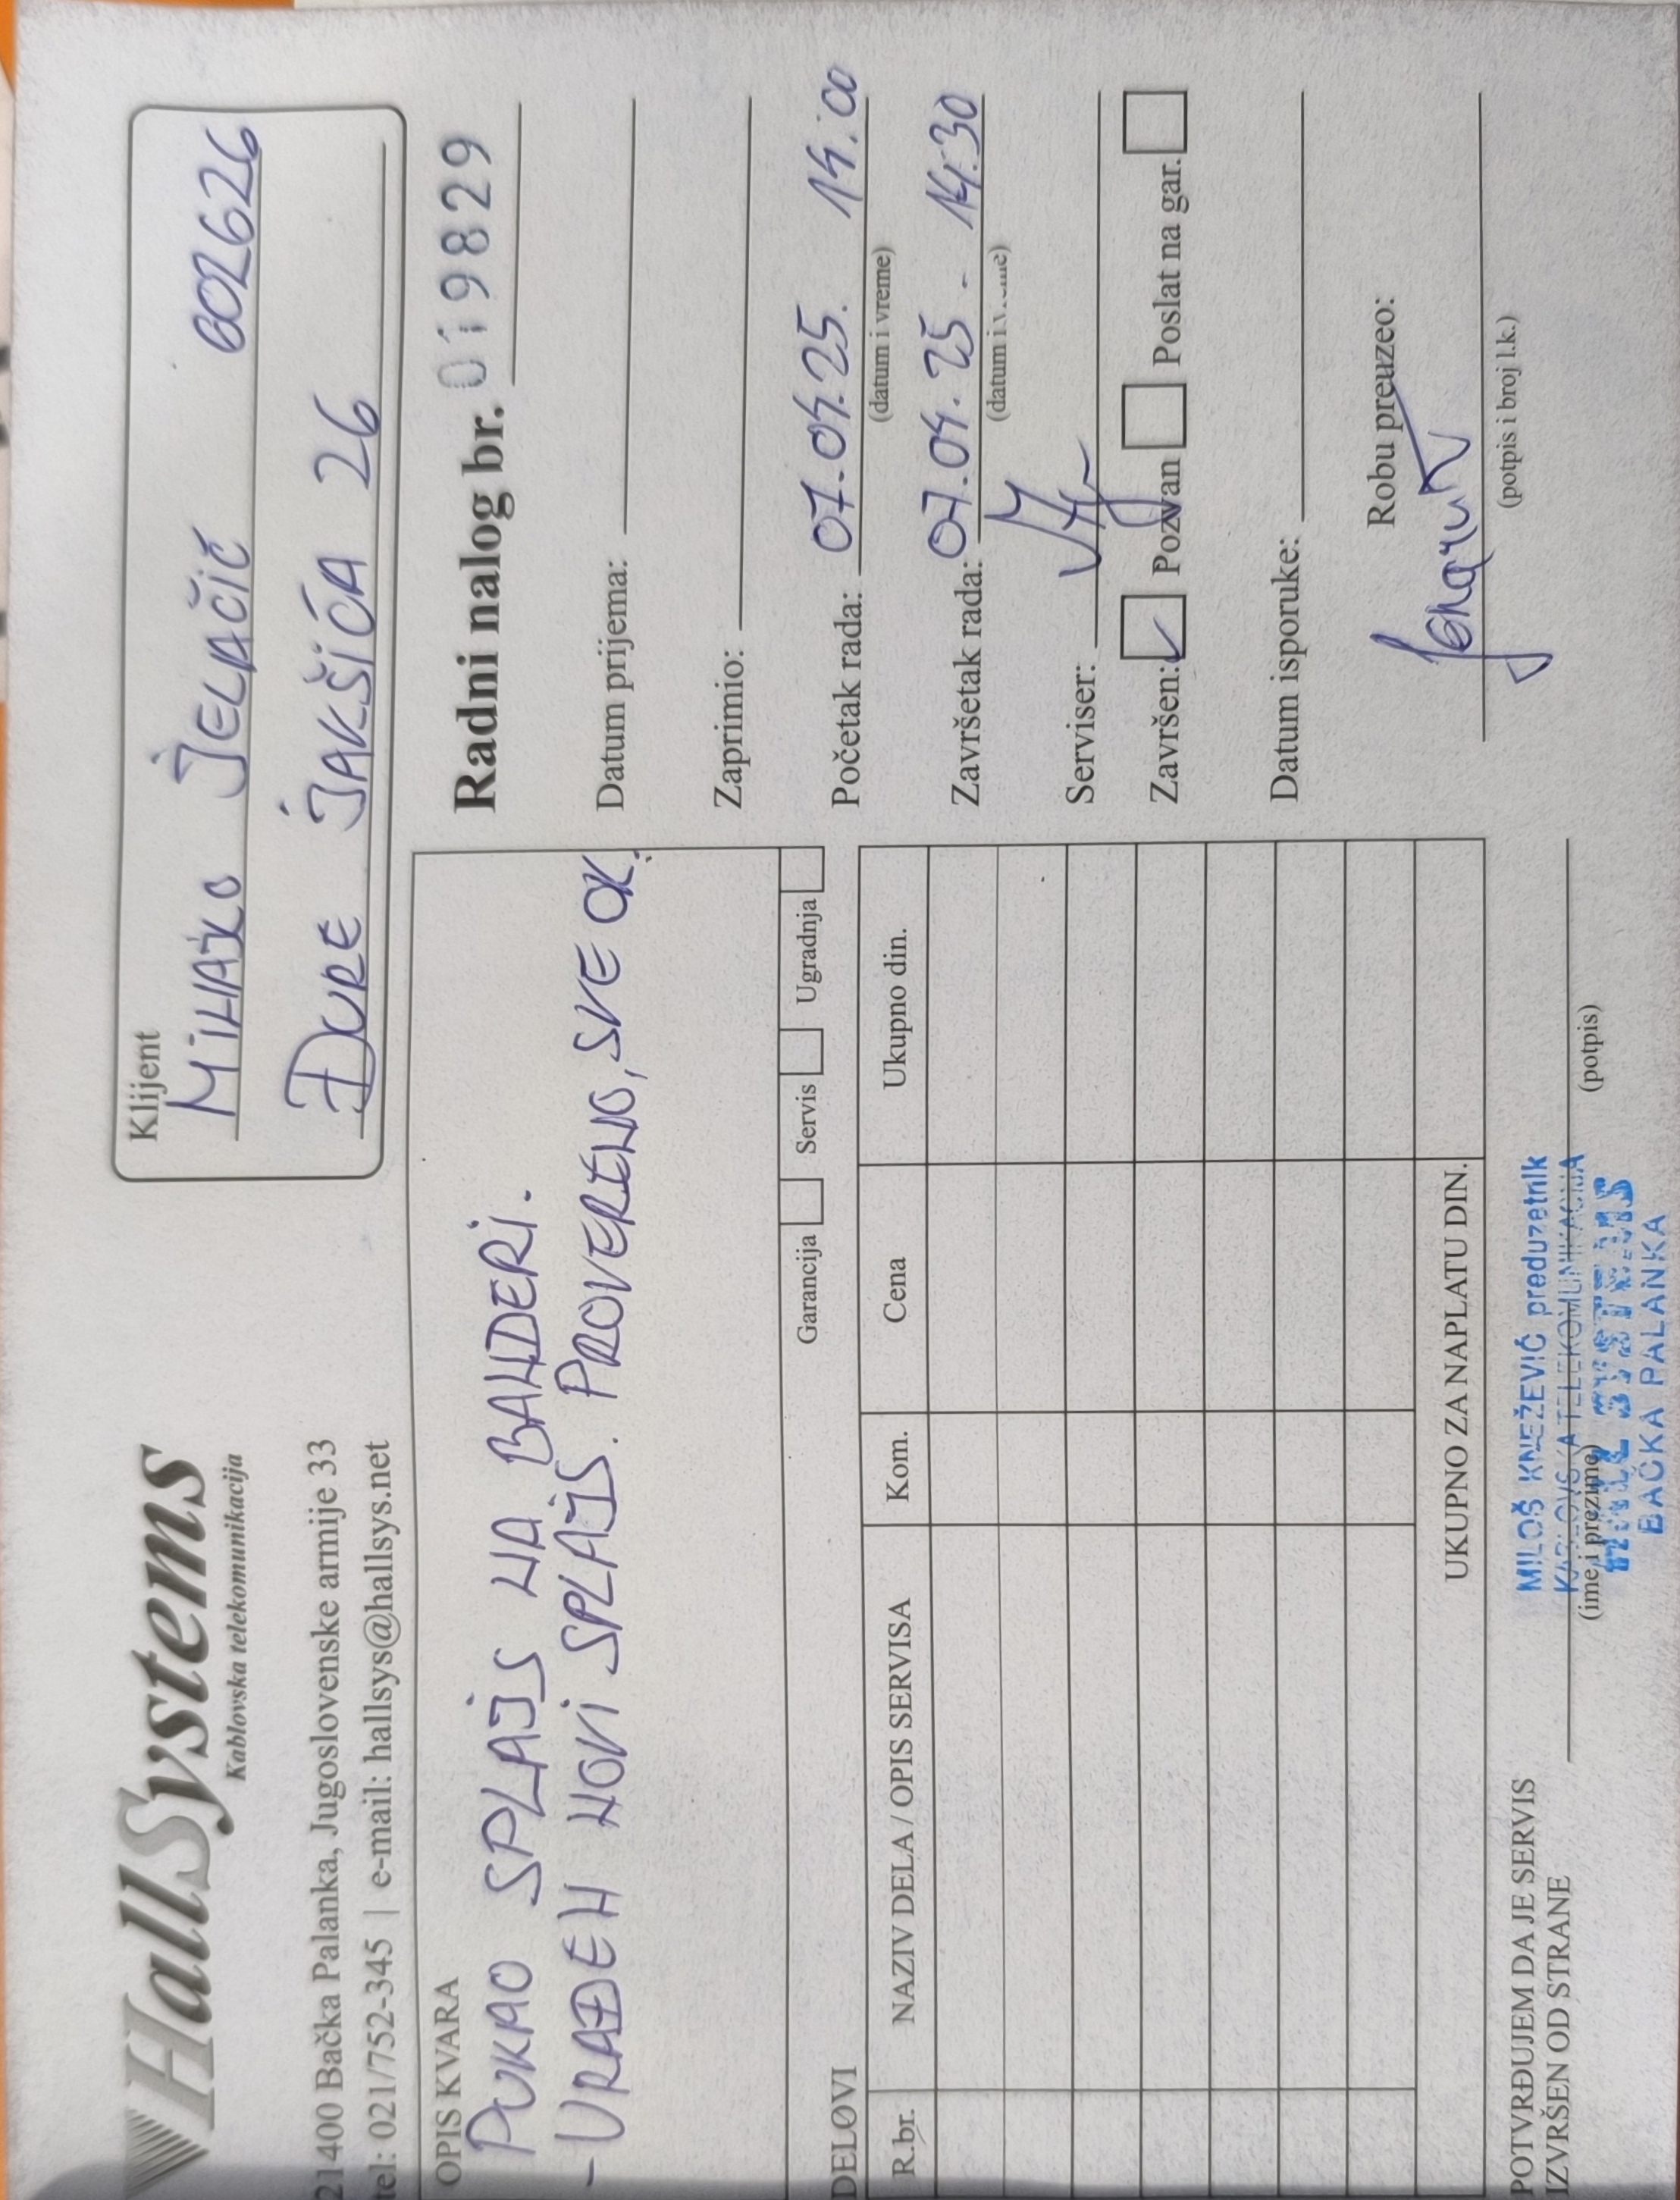 HallSystems
Kablovska telekomunikacija
21400 Bačka Palanka, Jugoslovenske armije 33
tel: 021/752-345 | e-mail: hallsys@hallsys.net
Klijent
MIHAJLO JELAČIĆ 602626
ĐURE JAKŠIĆA 26
OPIS KVARA
PUKAO SPLAJS NA BANDERI.
- URAĐEN NOVI SPLAJS. PROVERENO, SVE OK.
Garancija Servis Ugradnja
Radni nalog br. 019829
Datum prijema:
Zaprimio:
Početak rada: 07.04.25. 14:00
(datum i vreme)
Završetak rada: 07.04.25 - 14:30
(datum i vreme)
Serviser:
Završen: Pozvan Poslat na gar.
Datum isporuke:
Robu preuzeo:
(potpis i broj l.k.)
DELOVI
R.br. NAZIV DELA / OPIS SERVISA Kom. Cena Ukupno din.
UKUPNO ZA NAPLATU DIN.
POTVRĐUJEM DA JE SERVIS
IZVRŠEN OD STRANE
(ime i prezime) (potpis)
MILOŠ KNEŽEVIĆ preduzetnik
KABLOVSKA TELEKOMUNIKACIJA
HALL SYSTEMS
BAČKA PALANKA